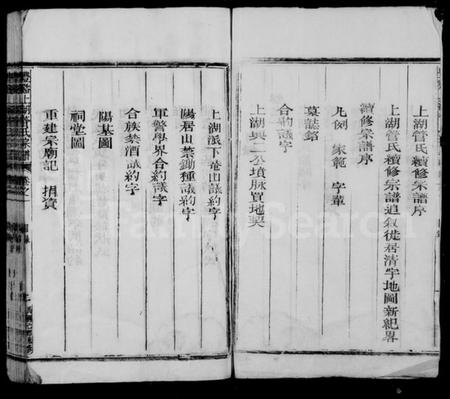 上湖管氏續修宗譜序
上湖管氏續修宗譜追敘徙居清宇地圖新紀畧
續修宗譜序
凡例 家範 字輩
墓誌銘
合約議字
上湖興二公墳脉買地契
上湖派下菴山議約字
陽居山禁鋤種議約字
軍警學界合約議字
合族禁酒議約字
陽基圖
祠堂圖
重建宗廟記 捐資
FamilySearch